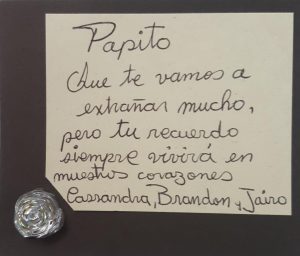 Papito
Que te vamos a
extrañar mucho,
pero tu recuerdo
siempre vivirá en
nuestros corazones
Cassandra, Brandon y Jairo